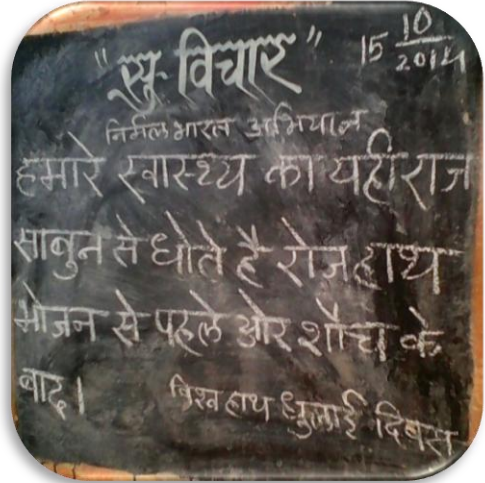 "सु-विचार" 15 10/2014
निर्मल भारत अभियान
हमारे स्वास्थ्य का यही राज
साबुन से धोते है रोज हाथ
भोजन से पहले ओर शौच के
बाद।
विश्व हाथ धुलाई दिवस